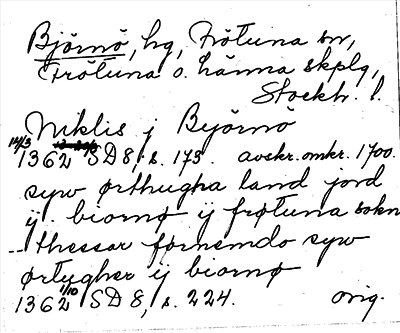 Björnö, hg, Frötuna sn,
Frötuna o. Länna skplg,
Stockh. l.
Niklis j Byörno
14/3 1362 SD 8, s. 173. avskr. omkr. 1700.
syw ørthugha land jord
ÿ biornø ÿ frøtuna sokn
thessar førnemdo syw
ørtygher ÿ biornø
1/10 1362 SD 8, s. 224. orig.